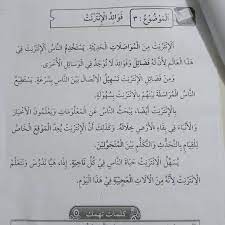 الموضوع : ٣ فوائد الإنترنت
الإنترنت من المواصلات الحديثة. يستخدم الناس الإنترنت في
هذا العالم لأنه فضائل وفوائد لا توجد في الوسائل الأخرى.
ومن فضائل الإنترنت تسهيل الاتصال بين الناس بسرعة. يستطيع
الناس المراسلة بينهم بالإنترنت بسهولة.
بالإنترنت أيضا، يبحث الناس عن المعلومات ويعلمون الأخبار
والأنباء في بقاع الأرض خلالة. وكذلك أن الإنترنت يعد الموقع الخاص
للقيام بالتحدث والتكلم بين المتجولين.
يسهل الإنترنت حياة الناس في كل ناحية. إذا، هيا ندرس ونتعلم
الإنترنت لأنه من الآلات العجيبة في هذا اليوم.
كلمات مهمات